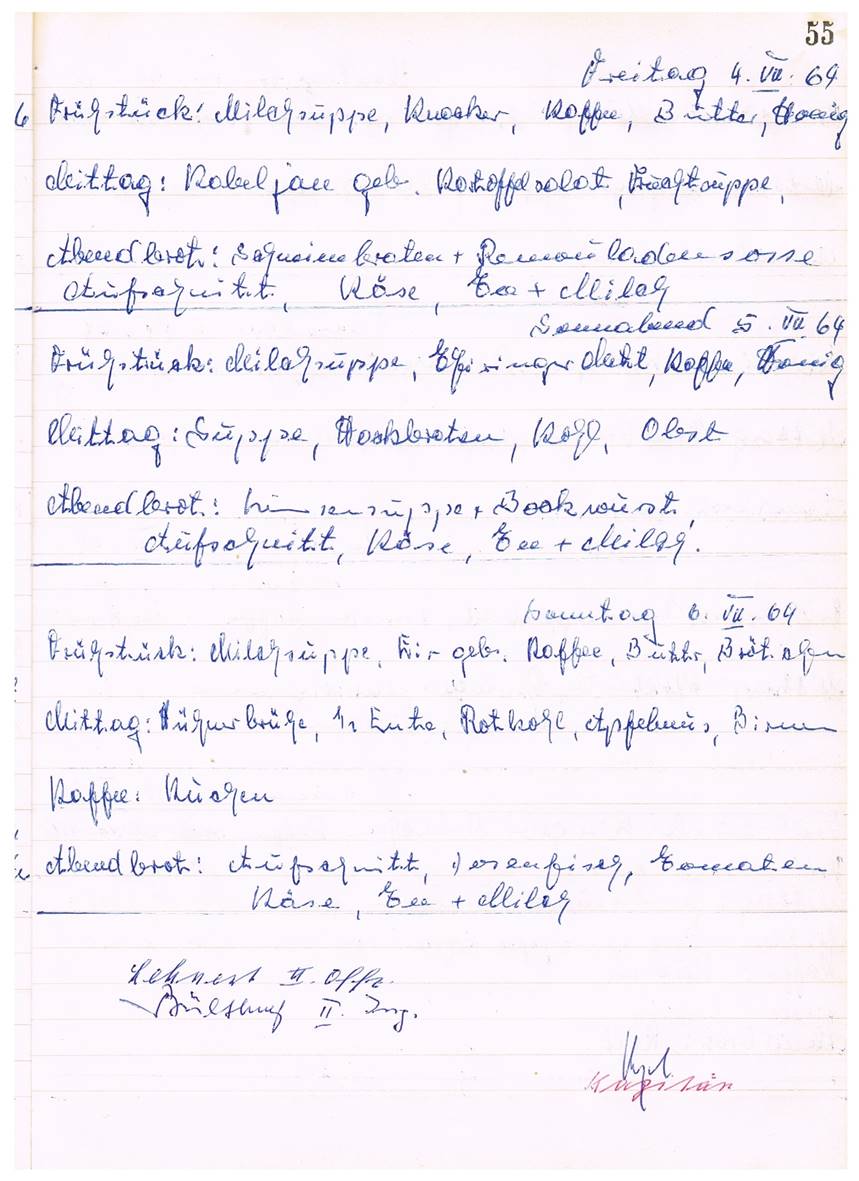 55
Freitag 4. VII. 64
Frühstück: Milchsuppe, Knacker, Kaffee, Butter, Honig
Mittag: Kabeljau geb. Kartoffelsalat, Fruchtsuppe,
Abendbrot: Schweinebraten + Remouladensosse
Aufschnitt, Käse, Tee + Milch
Sonnabend 5. VII. 64
Frühstück: Milchsuppe, Thüringer Mett, Kaffee, Honig
Mittag: Suppe, Hackbraten, Kohl, Obst
Abendbrot: Linsensuppe + Bockwurst,
Aufschnitt, Käse, Tee + Milch.
Sonntag 6. VII. 64
Frühstück: Milchsuppe, Eier geb. Kaffee, Butter, Brötchen
Mittag: Hühnerbrühe, 1/2 Ente, Rotkohl, Apfelmus, Birnen
Kaffee: Kuchen
Abendbrot: Aufschnitt, Tomaten
Käse, Tee + Milch
Lehnert II. Offz.
II. Ing.
Kapitän